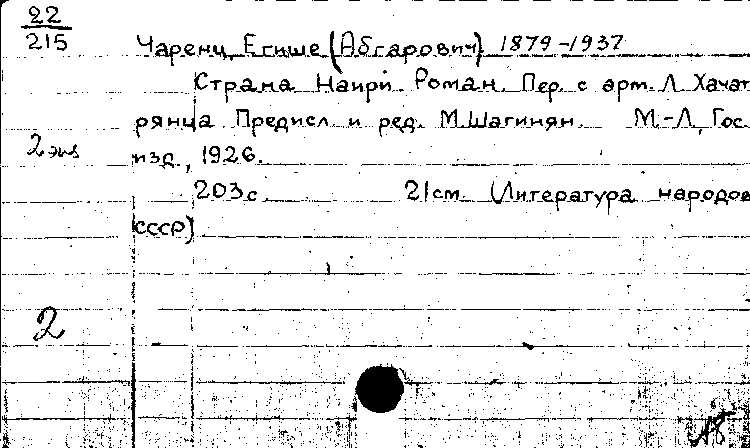 22
215
Чаренц, Егише (Абгарович) 1879-1937
Страна Наири. Роман. Пер. с арм. Л. Хачат
рянца. Предисл. и ред. М. Шагинян. М.-Л., Гос.
2 экз
изд., 1926.
203 с. 21 см. (Литература народов
СССР)
2